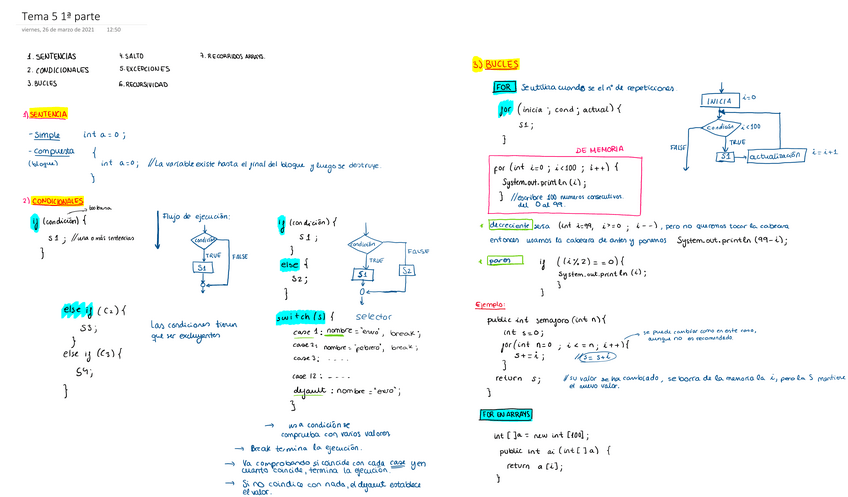 Tema 5 1ª parte
viernes, 26 de marzo de 2021 12:50
1. SENTENCIAS
2. CONDICIONALES
3. BUCLES
4. SALTO
5. EXCEPCIONES
6. RECURSIVIDAD
7. RECORRIDOS ARRAYS.
1) SENTENCIA
- Simple int a = 0 ;
- compuesta {
(bloque) int a=0; //La variable existe hasta el final del bloque y luego se destruye.
}
2) CONDICIONALES
booleana
if (condición) {
S1 ; //una o más sentencias
}
Flujo de ejecución:
condición
TRUE
FALSE
S1
if (condición) {
S1 ;
}
else {
S2;
}
condición
TRUE
FALSE
S1
S2
else if (C2) {
S3;
}
else if (C3) {
S4;
}
Las condiciones tienen
que ser excluyentes
switch (s) { selector
case 1: nombre = "enero", break;
case 2: nombre = "febrero", break;
case 3; ----
case 12 : ----
default : nombre = "enero";
}
→ una condición se
comprueba con varios valores
→ Break termina la ejecución.
→ Va comprobando si coincide con cada case y en
cuanto coincide, termina la ejecución.
→ Si no coindice con nada, el default establece
el valor.
3) BUCLES
FOR Se utiliza cuando se el nº de repeticiones
for (inicia ; cond ; actual) {
S1 ;
}
INICIA i=0
condición i<100
TRUE
FALSE
S1 → actualización i = i+1
DE MEMORIA
for (int i=0 ; i<100 ; i++) {
System.out.println (i);
} //escribre 100 numeros consecutivos.
del 0 al 99.
decreciente seria (int i=99, i>=0 ; i--), pero no queremos tocar la cabecera
entonces usamos la cabecera de antes y ponemos System.out.println (99-i);
pares if ((i%2)==0) {
System.out.println (i);
}
}
Ejemplo:
public int semaforo (int n) {
int s=0;
for (int n=0 ; i<=n ; i++) {
se puede cambiar como en este caso,
aunque no es recomendable
s+=i ; s = s+i
}
return s; //su valor se ha cambiado, se borra de la memoria la i, pero la S mantiene
} el nuevo valor.
FOR EN ARRAYS
int [ ] a = new int [100] ;
public int si (int [ ] a) {
return a [i] ;
}